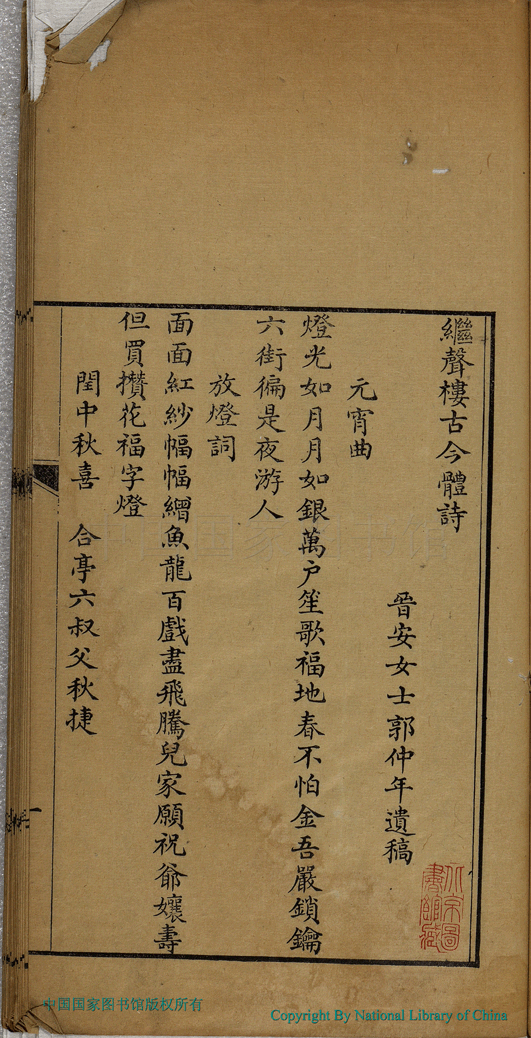 繼聲樓古今體詩
晉安女士郭仲年遺稿
元宵曲
燈光如月月如銀萬户笙歌福地春不怕金吾嚴鎖鑰
六街徧是夜游人
放燈詞
面面紅紗幅幅繒魚龍百戲盡飛騰兒家願祝爺孃壽
但買攢花福字燈
閏中秋喜 合亭六叔父秋捷
一
北京圖書館藏
中国国家图书馆
中国国家图书馆版权所有
Copyright By National Library of China